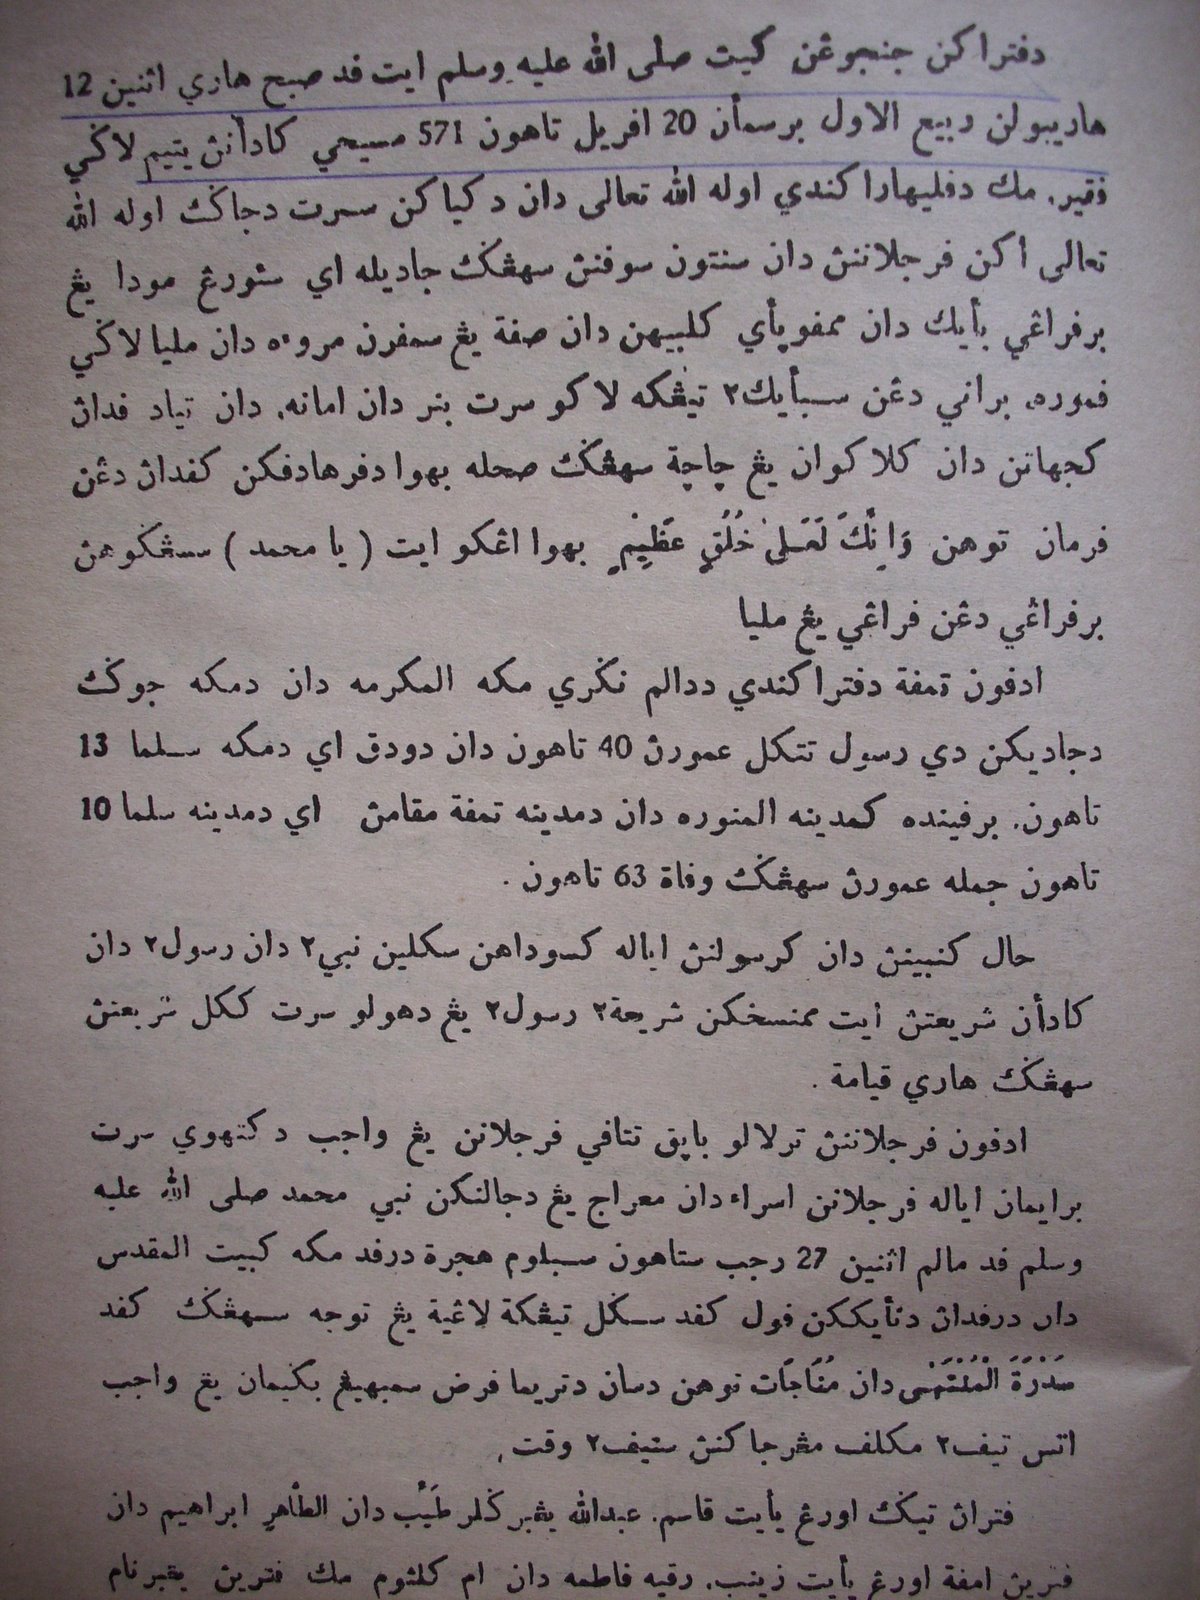 دفتراکن جنجوڠن کيت صلى الله عليه وسلم ايت فد صبح هاري اثنين 12
هاريبولن ربيع الاول برسمأن 20 افريل تاهون 571 مسيحي کادأنڽ يتيم لاڬي
فقير. مك دفليهاراکندي اوله الله تعالى دان دکياکن سرت دجاڬ اوله الله
تعالى اکن فرجلاننڽ دان سنتون سوفنڽ سهڠڬ جاديله اي سئورڠ مودا يڠ
برفراڠي بأيك دان ممفوڽأي کلبيهن دان صفة يڠ سمفرن مروءه دان مليا لاڬي
فموره. براني دڠن سبأيك٢ تيڠکه لاکو سرت بنر دان امانه. دان تياد فداڽ
کجهاتن دان کلاکوان يڠ چاچة سهڠڬ صحله بهوا دفرهادفکن کفداڽ دڠن
فرمان توهن وَإِنَّكَ لَعَلىٰ خُلُقٍ عَظِيمٍ بهوا اڠکو ايت ( يا محمد ) سسڠڬوهڽ
برفراڠي دڠن فراڠي يڠ مليا
ادفون تمفة دفتراکندي ددالم نڬري مکه المکرمه دان دمکه جوڬ
دجاديکن دي رسول تتکل عمورڽ 40 تاهون دان دودق اي دمکه سلما 13
تاهون. برفينده کمدينه المنوره دان دمدينه تمفة مقامڽ اي دمدينه سلما 10
تاهون جمله عمورڽ سهڠڬ وفاة 63 تاهون .
حال کنبينڽ دان کرسولنڽ اياله کسوداهن سکلين نبي٢ دان رسول٢ دان
کادأن شريعتڽ ايت ممنسخکن شريعة٢ رسول٢ يڠ دهولو سرت ککل شريعتڽ
سهڠڬ هاري قيامة .
ادفون فرجلاننڽ ترلالو باڽق تتافي فرجلانن يڠ واجب دکتهوي سرت
برايمان اياله فرجلانن اسراء دان معراج يڠ دجالنکن نبي محمد صلى الله عليه
وسلم فد مالم اثنين 27 رجب ستاهون سبلوم هجرة درفد مکه کبيت المقدس
دان درفداڽ دنأيککن فول کفد سڬل تيڠکة لاڠية يڠ توجه سهڠڬ کفد
سَدْرَةَ الْمُنْتَهَى دان مُنَاجَات توهن دسان دتريما فرض سمبهيڠ بڬيمان يڠ واجب
اتس تيف٢ مکلف مڠرجاکنڽ ستيف٢ وقت.
فتراڽ تيڬ اورڠ يأيت قاسم. عبدالله يڠبرڬلر طَيِّب دان الطّاهر ابراهيم دان
فترين امفة اورڠ يأيت زينب. رقيه فاطمه دان ام کلثوم مك فترين يڠبرنام